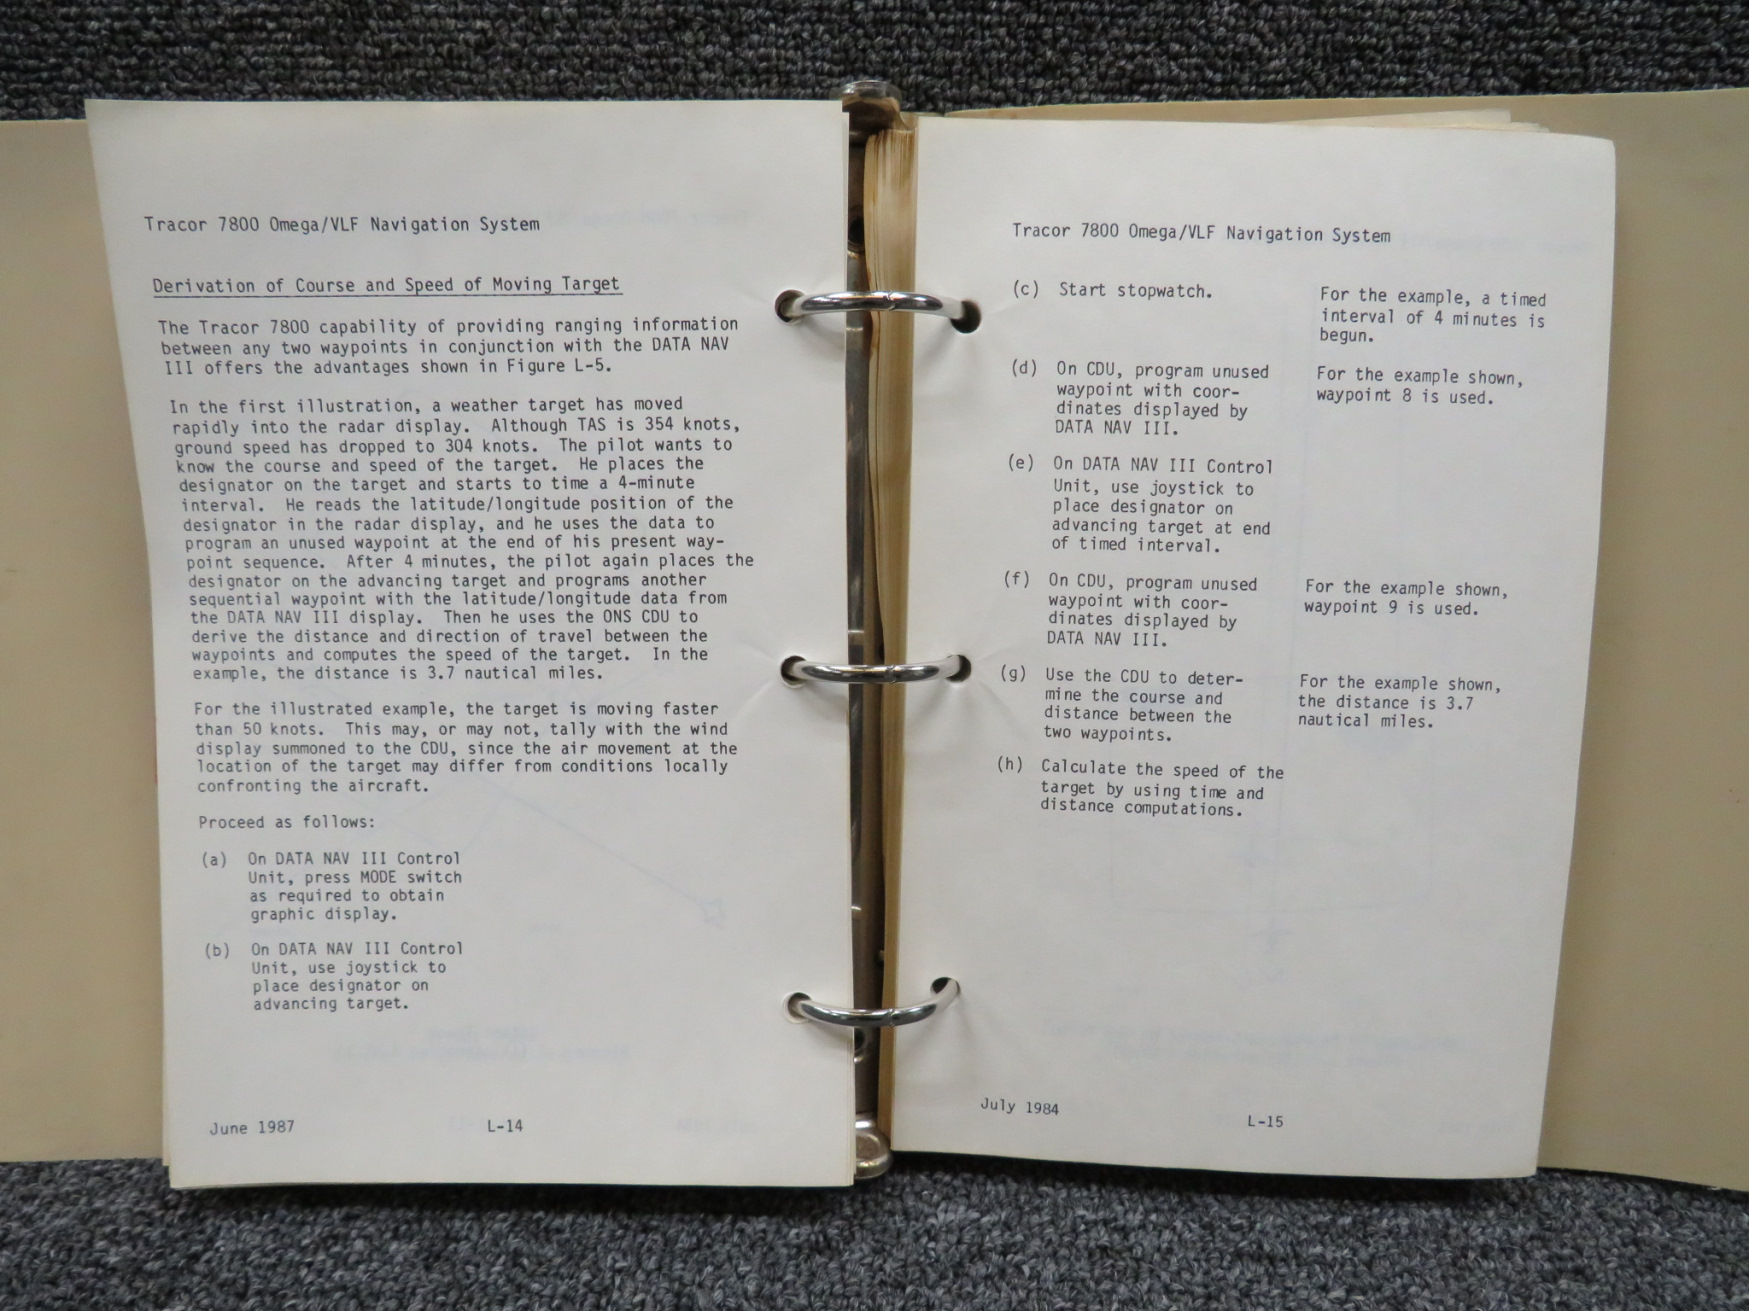 Tracor 7800 Omega/VLF Navigation System
Derivation of Course and Speed of Moving Target
The Tracor 7800 capability of providing ranging information
between any two waypoints in conjunction with the DATA NAV
III offers the advantages shown in Figure L-5.
In the first illustration, a weather target has moved
rapidly into the radar display. Although TAS is 354 knots,
ground speed has dropped to 304 knots. The pilot wants to
know the course and speed of the target. He places the
designator on the target and starts to time a 4-minute
interval. He reads the latitude/longitude position of the
designator in the radar display, and he uses the data to
program an unused waypoint at the end of his present way-
point sequence. After 4 minutes, the pilot again places the
designator on the advancing target and programs another
sequential waypoint with the latitude/longitude data from
the DATA NAV III display. Then he uses the ONS CDU to
derive the distance and direction of travel between the
waypoints and computes the speed of the target. In the
example, the distance is 3.7 nautical miles.
For the illustrated example, the target is moving faster
than 50 knots. This may, or may not, tally with the wind
display summoned to the CDU, since the air movement at the
location of the target may differ from conditions locally
confronting the aircraft.
Proceed as follows:
(a) On DATA NAV III Control
Unit, press MODE switch
as required to obtain
graphic display.
(b) On DATA NAV III Control
Unit, use joystick to
place designator on
advancing target.
June 1987 L-14
Tracor 7800 Omega/VLF Navigation System
(c) Start stopwatch.
For the example, a timed
interval of 4 minutes is
begun.
(d) On CDU, program unused
waypoint with coor-
dinates displayed by
DATA NAV III.
For the example shown,
waypoint 8 is used.
(e) On DATA NAV III Control
Unit, use joystick to
place designator on
advancing target at end
of timed interval.
(f) On CDU, program unused
waypoint with coor-
dinates displayed by
DATA NAV III.
For the example shown,
waypoint 9 is used.
(g) Use the CDU to deter-
mine the course and
distance between the
two waypoints.
For the example shown,
the distance is 3.7
nautical miles.
(h) Calculate the speed of the
target by using time and
distance computations.
July 1984 L-15